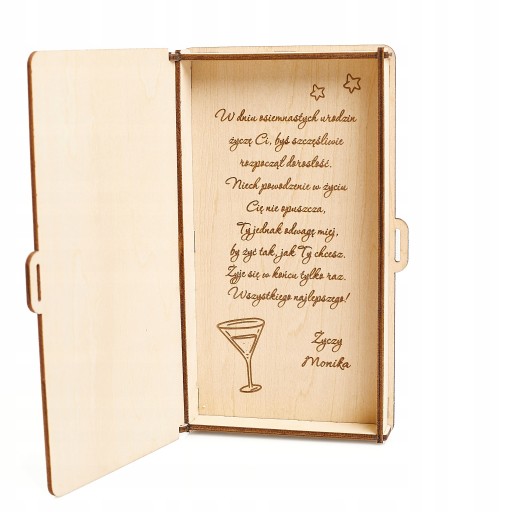 W dniu osiemnastych urodzin
życzę Ci, byś szczęśliwie
rozpoczął dorosłość.
Niech powodzenie w życiu
Cię nie opuszcza,
Ty jednak odwagę miej,
by żyć tak, jak Ty chcesz.
Żyje się w końcu tylko raz.
Wszystkiego najlepszego!
Życzy
Monika